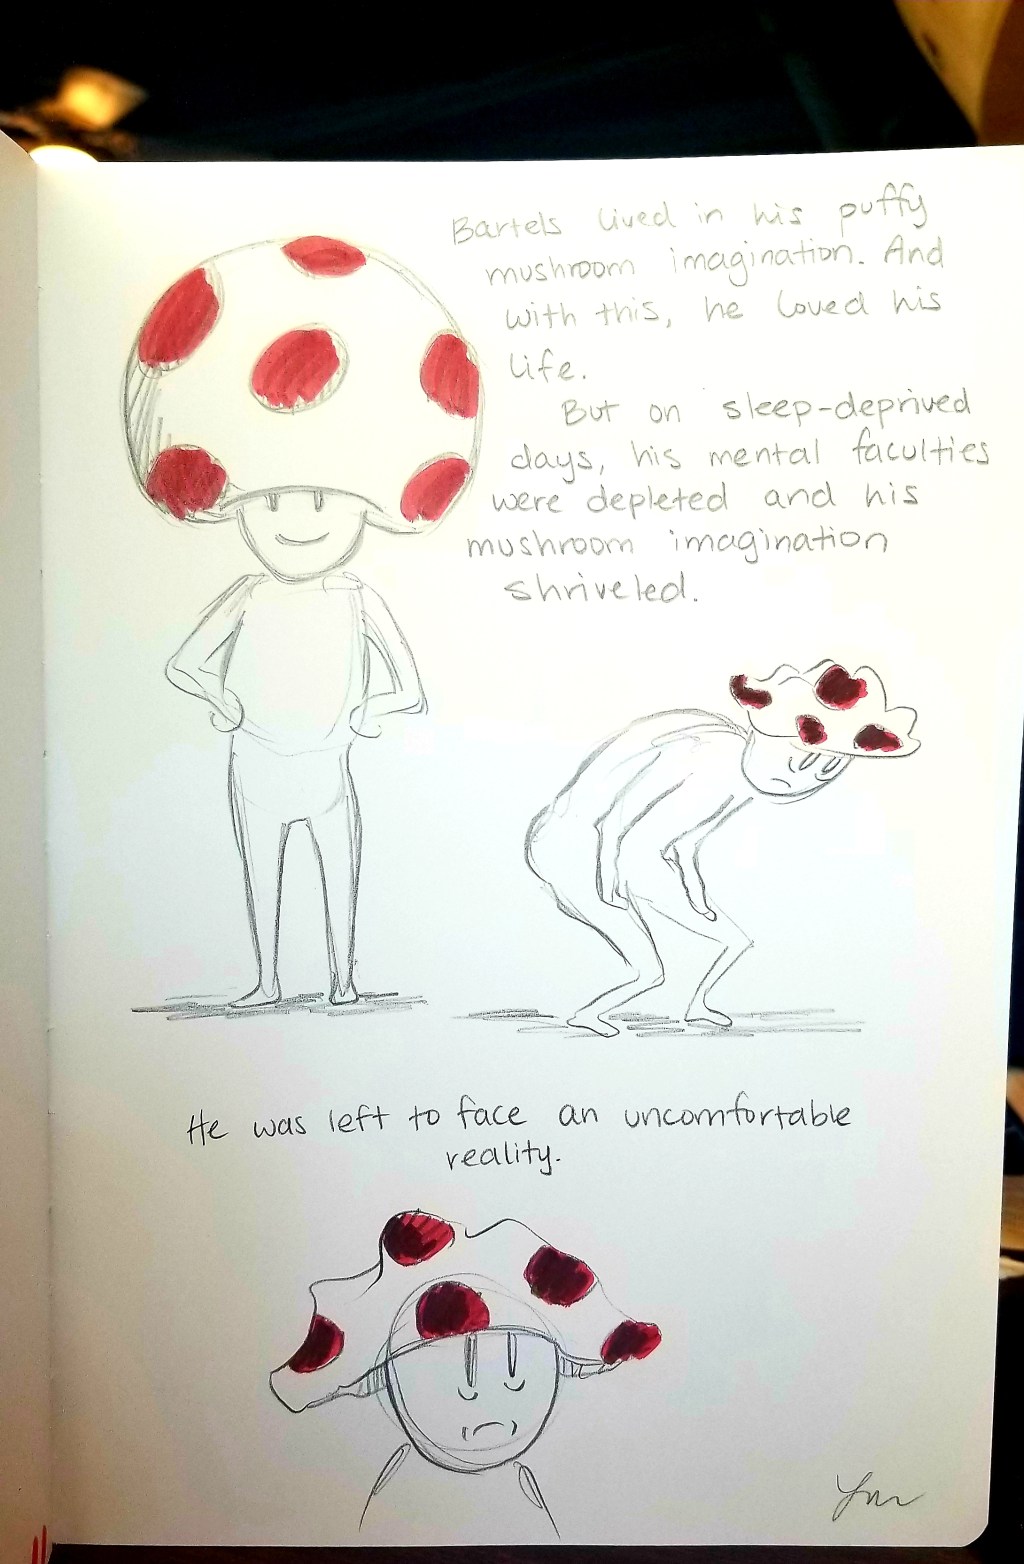 Bartels lived in his puffy
mushroom imagination. And
with this, he loved his
life.
But on sleep-deprived
days, his mental faculties
were depleted and his
mushroom imagination
shriveled.
He was left to face an uncomfortable
reality.